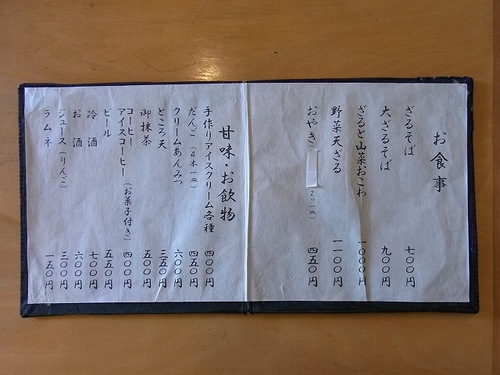 お食事
ざるそば 七〇〇円
大ざるそば 九〇〇円
ざると山菜おこわ 一〇〇〇円
野菜天ざる 一一〇〇円
おやき 四五〇円
甘味・お飲物
手作りアイスクリーム各種 四〇〇円
だんご(4本一皿) 四五〇円
クリームあんみつ 六〇〇円
ところ天 三五〇円
御抹茶 五〇〇円
コーヒー
アイスコーヒー(お菓子付き) 四〇〇円
ビール 五五〇円
冷酒 七〇〇円
お酒 六〇〇円
ジュース(りんご 三〇〇円
ラムネ 一五〇円